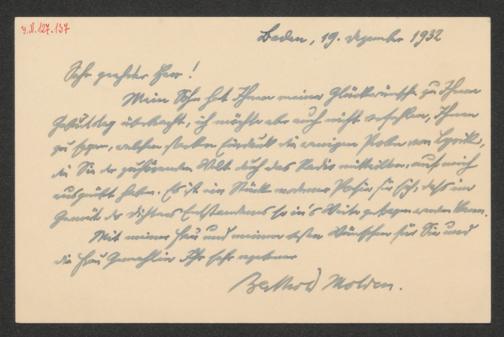 4.V.127.137
Baden, 19. Dezember 1932
Sehr geehrter Herr!
Mein Sohn hat Ihnen meine Glückwünsche zu Ihrem
Geburtstag überbracht, ich möchte aber auch nicht verfehlen, Ihnen
zu sagen, welchen starken Eindruck die wenigen Proben von Lyrik,
die Sie der zuhörenden Welt durch das Radio mitteilten, auf mich
ausgeübt haben. Es ist ein Stück moderner Poesie für sich, daß im
Gemüt des Dichters Entstandenes so in's Weite getragen werden kann.
Mit meiner Frau und meinen besten Wünschen für Sie und
die Frau Gemahlin Ihr sehr ergebener
Berthold Molden.